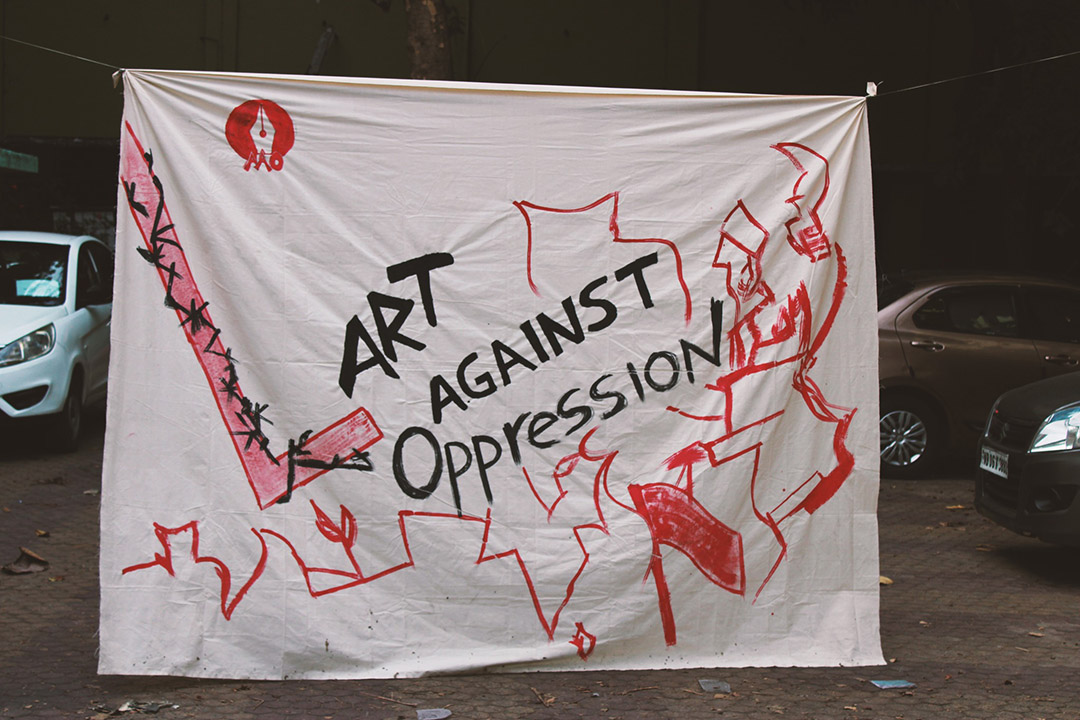 ART
AGAINST
OppressION